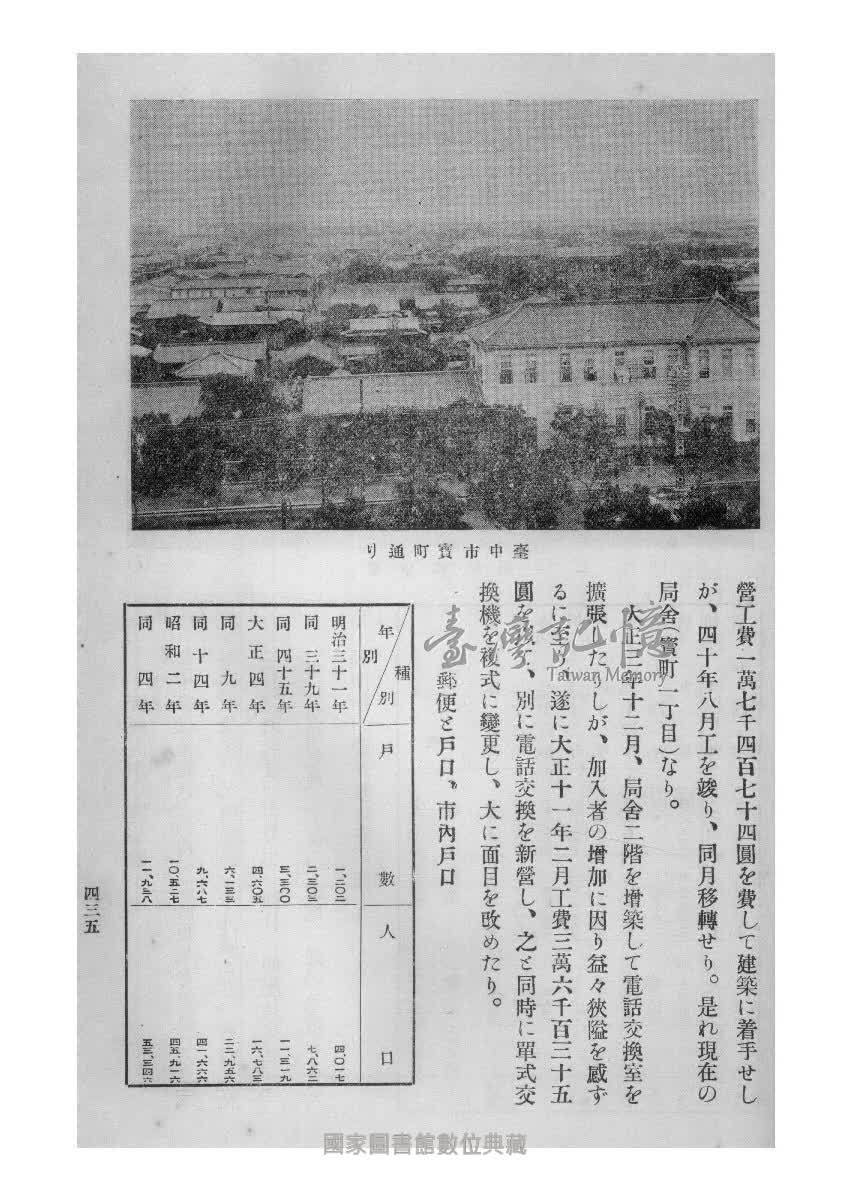 臺中市寶町通り
營工費一萬七千四百七十四圓を費して建築に着手せし
が、四十年八月工を竣り、同月移轉せり。是れ現在の
局舍(寶町一丁目)なり。
大正三年十二月、局舍二階を增築して電話交換室を
擴張した しが、加入者の增加に因り益々狹隘を感ず
るに至り、遂に大正十一年二月工費三萬六千百三十五
圓を 、別に電話交換を新營し、之と同時に單式交
換機を複式に變更し、大に面目を改めたり。
郵便と戶口、市內戶口
種別 年別 戶數 人口
明治三十一年 一、二〇二 四、〇一七
同 三十九年 二、三〇三 七、八六二
同 四十五年 三、三〇〇 一一、三一九
大正四年 四、六〇五 一六、七八三
同 九年 六、二三三 二二、九五六
同 十四年 九、六八七 四一、六六六
昭和二年 一〇、五二七 四五、九一六
同 四年 一一、九三八
四三五
臺灣記憶
Taiwan Memory
國家圖書館數位典藏